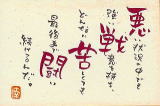 悪い状況の中でも
強い戦意を持ち
どんなに苦しくても
最後まで闘い
続けるんだ。
幸